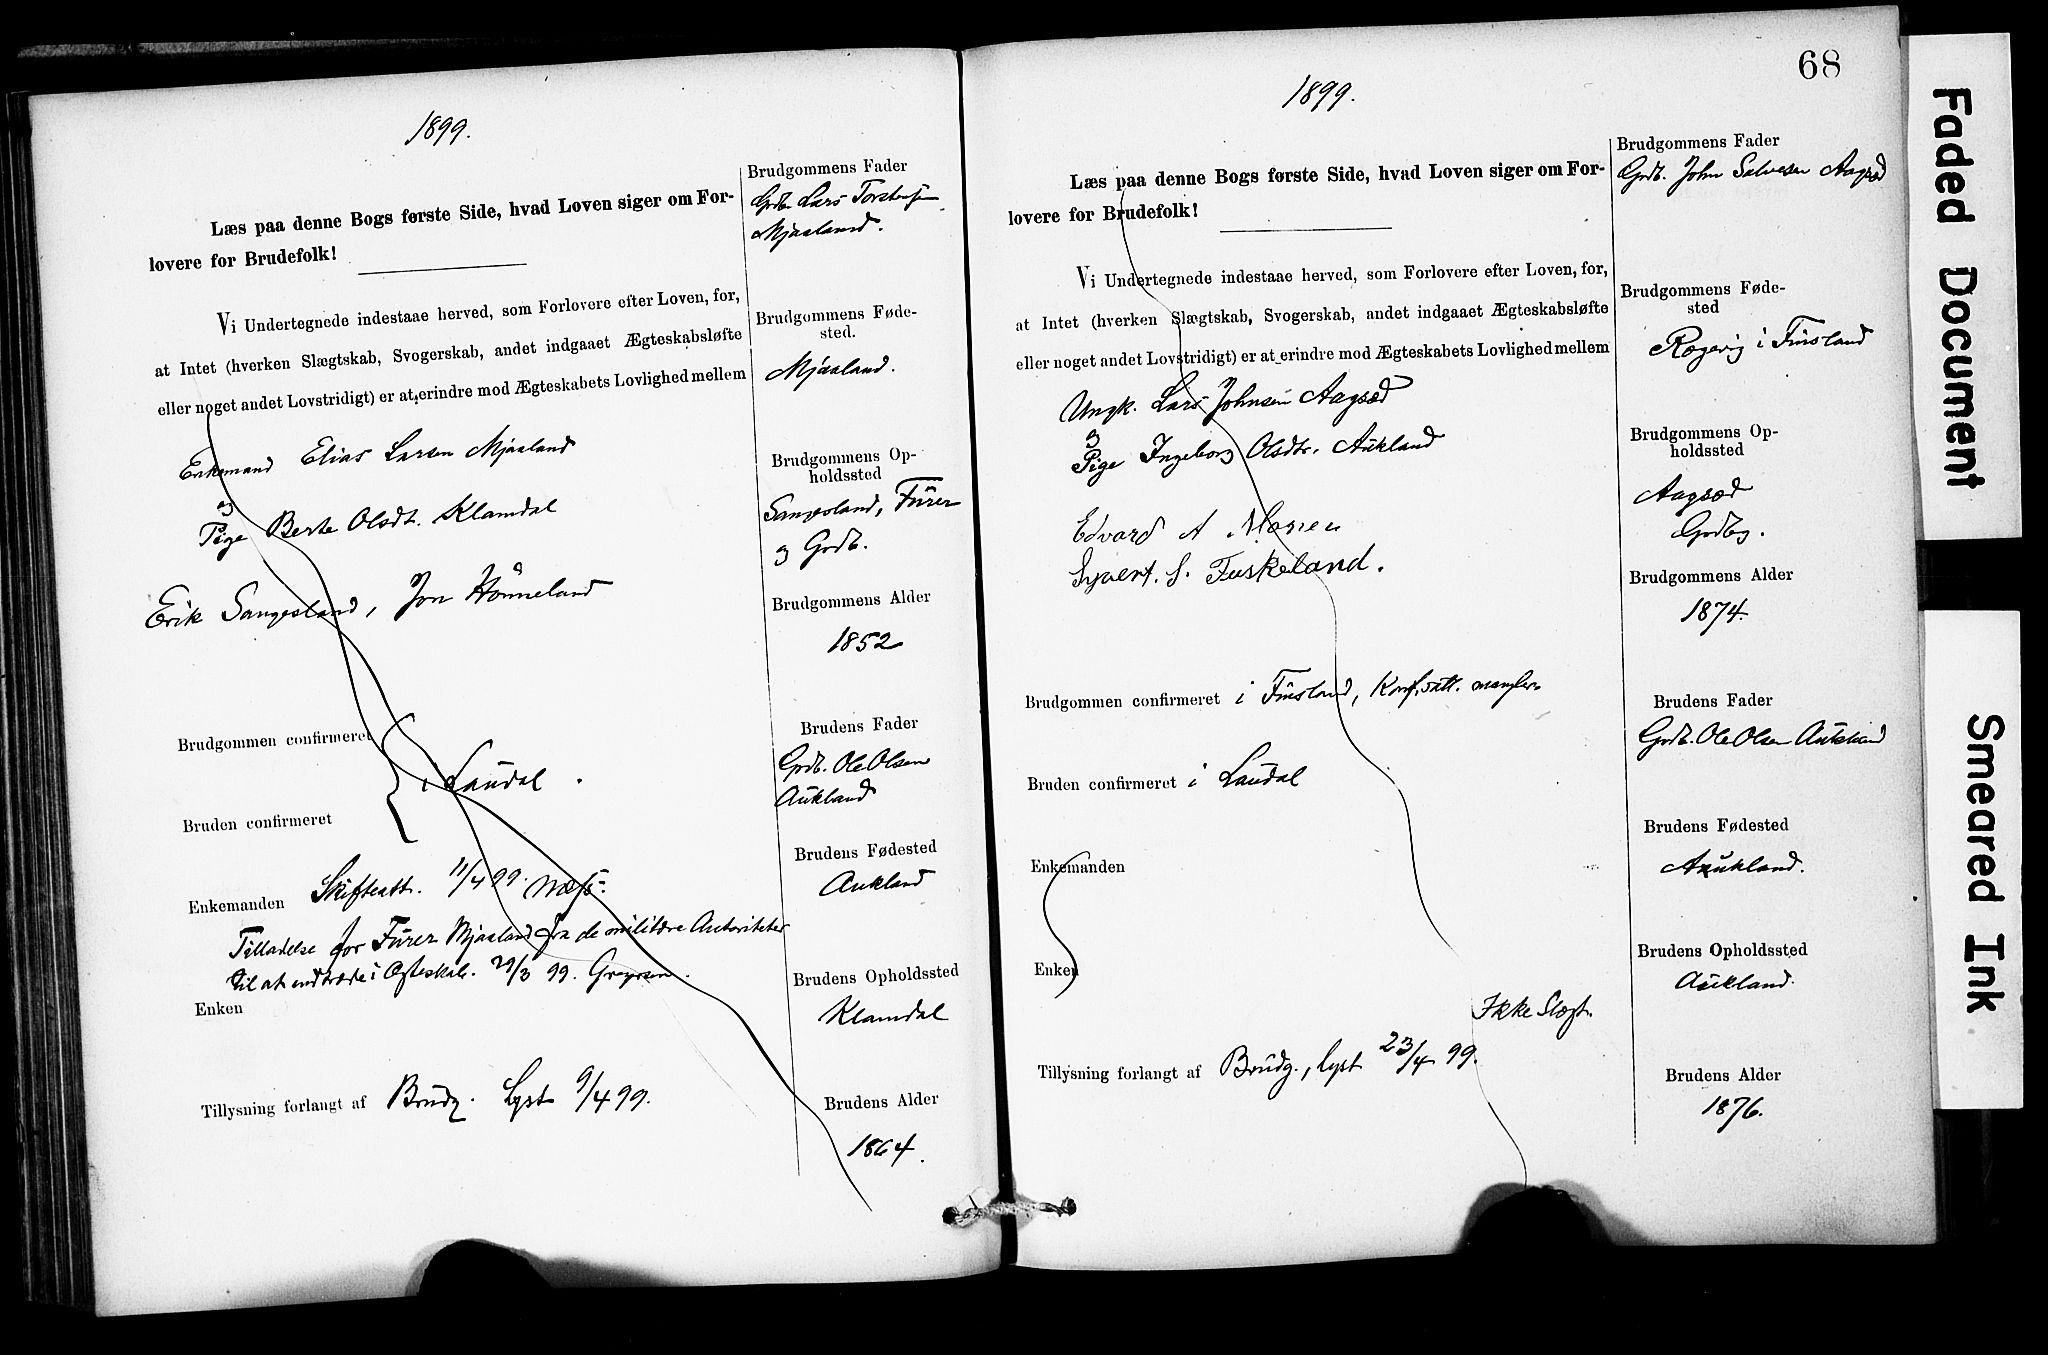 1899.
Læs paa denne Bogs første Side, hvad Loven siger om For-
lovere for Brudefolk!
Vi Undertegnede indestaae herved, som Forlovere efter Loven, for,
at Intet (hverken Slægtskab, Svogerskab, andet indgaaet Ægteskabsløfte
eller noget andet Lovstridigt) er at erindre mod Ægteskabets Lovlighed mellem
Enkemand Elias Larsen Mjaaland
og
Pige Berte Olsdt. Klamdal
Erik Sangesland, Jon Hönneland
Brudgommen confirmeret
i Laudal.
Bruden confirmeret
Enkemanden Skifteatt. 11/4 99.
Tilladelse for Fürer Mjaaland fra de militære Autoriteter
til at indtræde i Ægteskab. 29/3 99.
Enken
Tillysning forlangt af Brudg. Lyst 9/4 99.
Brudgommens Fader
Grdb. Lars Torstensen
Mjaaland.
Brudgommens Føde-
sted.
Mjaaland.
Brudgommens Op-
holdssted
Sangesland, Fürer
og Grdb.
Brudgommens Alder
1852
Brudens Fader
Grdb. Ole Olsen
Aukland
Brudens Fødested
Aukland
Brudens Opholdssted
Klamdal
Brudens Alder
1864.
68
1899.
Læs paa denne Bogs første Side, hvad Loven siger om For-
lovere for Brudefolk!
Vi Undertegnede indestaae herved, som Forlovere efter Loven, for,
at Intet (hverken Slægtskab, Svogerskab, andet indgaaet Ægteskabsløfte
eller noget andet Lovstridigt) er at erindre mod Ægteskabets Lovlighed mellem
Ungk. Lars Johnsen Aagsæd
og
Pige Ingeborg Olsdtr. Aukland
Edvard A
Syvert. S. Fuskeland.
Brudgommen confirmeret i Finsland, Konf. att. mangler
Bruden confirmeret i Laudal
Enkemanden
Enken
Ikke Slægt.
Tillysning forlangt af Brudg., lyst 23/4 99.
Brudgommens Fader
Grdb. John Salvesen Aagsæd
Brudgommens Føde-
sted
i Finsland
Brudgommens Op-
holdssted
Aagsæd
Brudgommens Alder
1874.
Brudens Fader
Grdb. Ole Olsen Aukland
Brudens Fødested
Aukland.
Brudens Opholdssted
Aukland.
Brudens Alder
1876.
Faded Document
Smeared Ink